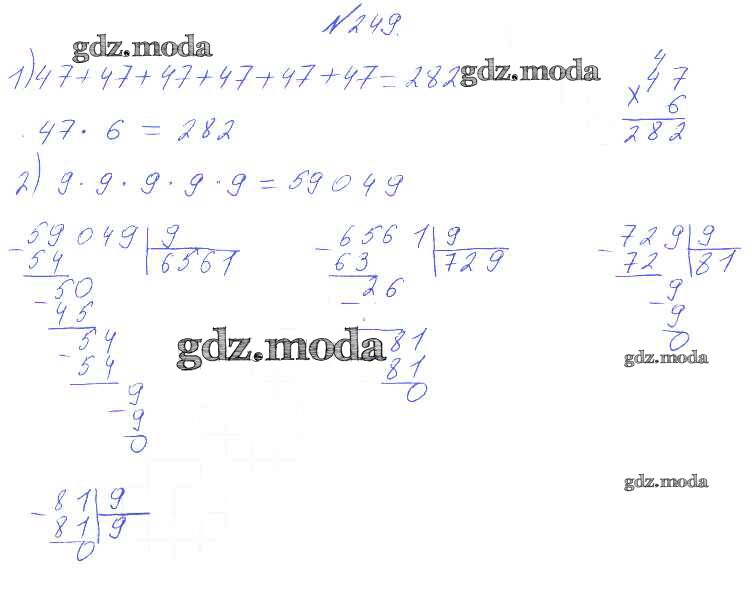 № 249.
gdz.moda
1) 47 + 47 + 47 + 47 + 47 + 47 = 282
gdz.moda
4
47
× 6
282
47 · 6 = 282
2) 9 · 9 · 9 · 9 · 9 = 59 049
- 59 049 | 9
54 | 6561
- 50
45
- 54
54
- 9
9
0
- 6561 | 9
63 | 729
- 26
81
81
0
- 729 | 9
72 | 81
- 9
9
0
gdz.moda
gdz.moda
gdz.moda
- 81 | 9
81 | 9
0